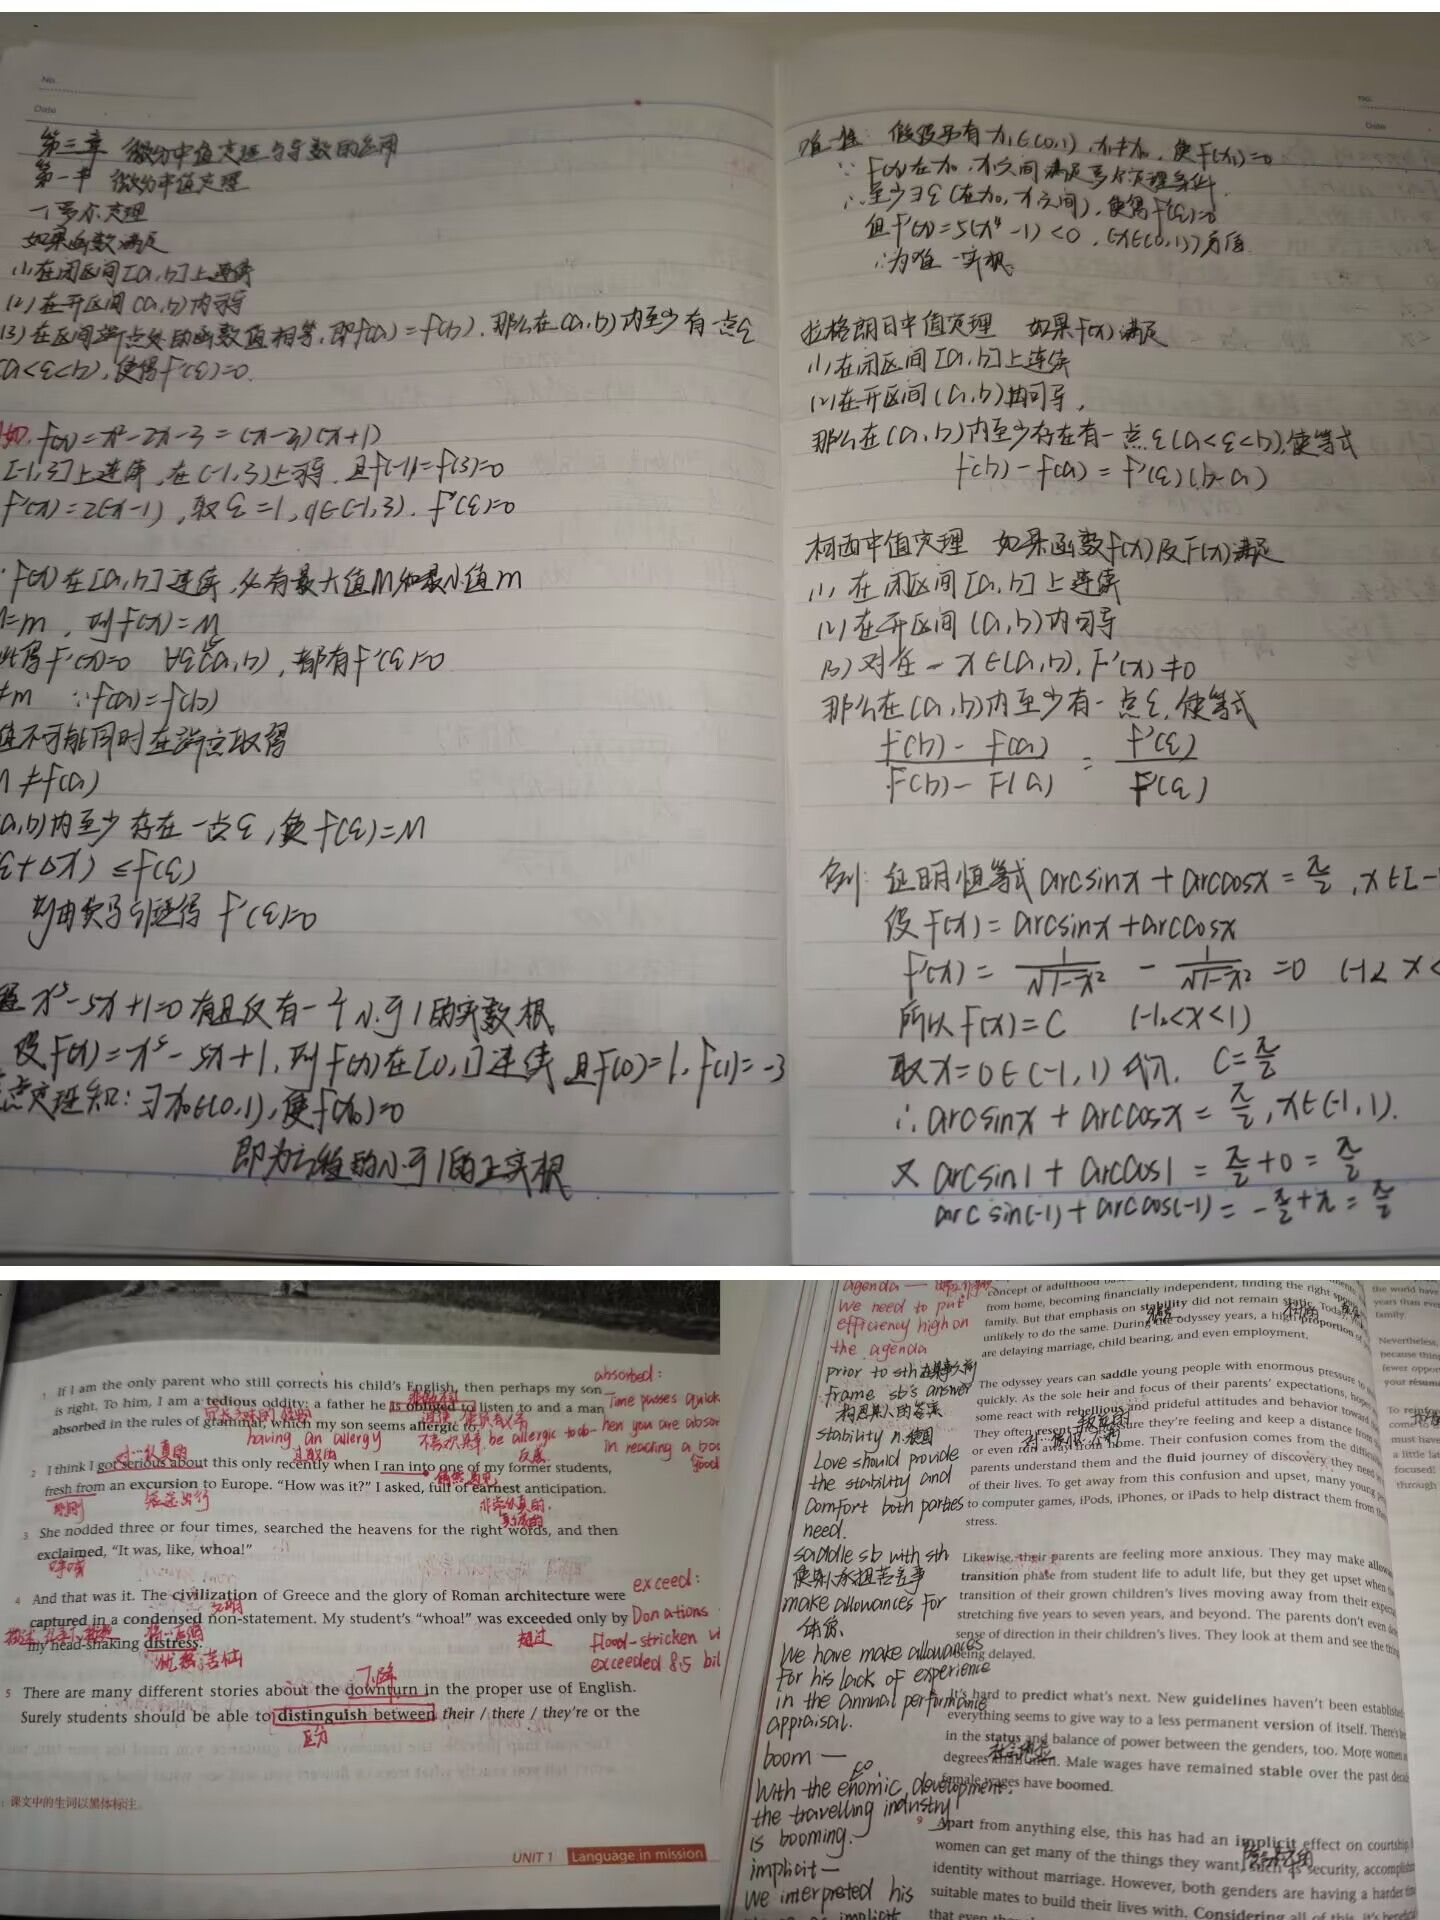 No.
Date
第三章 微分中值定理与导数的应用
第一节 微分中值定理
一、罗尔定理
如果函数满足
(1)在闭区间[a,b]上连续
(2)在开区间(a,b)内可导
(3)在区间端点处的函数值相等,即f(a)=f(b).那么在(a,b)内至少有一点ξ
(a<ξ<b),使得f'(ξ)=0.
如. f(x)=x²-2x-3=(x-3)(x+1)
[-1,3]上连续,在(-1,3)上可导,且f(-1)=f(3)=0
f'(x)=2(x-1),取ξ=1,(1∈(-1,3)). f'(ξ)=0
f(x)在[a,b]连续,必有最大值M和最小值m
=m,则f(x)=M
此得f'(x)=0 ∀ξ∈(a,b),都有f'(ξ)=0
≠m ∵f(a)=f(b)
值不可能同时在端点取得
≠f(a)
a,b)内至少存在一点ξ,使f(ξ)=M
ξ+Δx)≤f(ξ)
由费马引理得 f'(ξ)=0
程x⁵-5x+1=0有且仅有一个小于1的实数根
设f(x)=x⁵-5x+1,则f(x)在[0,1]连续且f(0)=1,f(1)=-3
点定理知:∃x₀∈(0,1),使f(x₀)=0
即为方程的小于1的正实根
No.
Date
唯一性:假设另有x₁∈(0,1),x₁≠x₀,使f(x₁)=0
∵f(x)在x₀,x₁之间满足罗尔定理条件
∴至少∃ξ(在x₀,x₁之间),使得f'(ξ)=0
但f'(x)=5(x⁴-1)<0,(x∈(0,1))矛盾
∴为唯一实根
拉格朗日中值定理 如果f(x)满足
(1)在闭区间[a,b]上连续
(2)在开区间(a,b)内可导,
那么在(a,b)内至少存在有一点ξ(a<ξ<b),使等式
f(b)-f(a)=f'(ξ)(b-a)
柯西中值定理 如果函数f(x)及F(x)满足
(1)在闭区间[a,b]上连续
(2)在开区间(a,b)内可导
(3)对任一x∈(a,b),F'(x)≠0
那么在(a,b)内至少有一点ξ,使等式
f(b)-f(a) / F(b)-F(a) = f'(ξ) / F'(ξ)
例:证明恒等式arcsinx+arccosx=π/2,x∈[-
设f(x)=arcsinx+arccosx
f'(x)=1/√1-x² - 1/√1-x² =0 (-1<x<
所以f(x)=C (-1<x<1)
取x=0∈(-1,1)代入. C=π/2
∴arcsinx+arccosx=π/2,x∈(-1,1).
又arcsin1+arccos1=π/2+0=π/2
arcsin(-1)+arccos(-1)=-π/2+π=π/2
1 If I am the only parent who still corrects his child's English, then perhaps my son
is right. To him, I am a tedious oddity: a father he is obliged to listen to and a man
absorbed in the rules of grammar, which my son seems allergic to.
having an allergy
be allergic to
过敏的
反感
2 I think I got serious about this only recently when I ran into one of my former students,
fresh from an excursion to Europe. "How was it?" I asked, full of earnest anticipation.
非常认真的,
真诚的
3 She nodded three or four times, searched the heavens for the right words, and then
exclaimed, "It was, like, whoa!"
呼喊
4 And that was it. The civilization of Greece and the glory of Roman architecture were
文明
captured in a condensed non-statement. My student's "whoa!" was exceeded only by
超过
my head-shaking distress.
忧愁,苦恼
下降
5 There are many different stories about the downturn in the proper use of English.
Surely students should be able to distinguish between their / there / they're or the
区分
absorbed:
Time passes quick
hen you are absor
in reading a boo
good
exceed:
Donations
flood-stricken
exceeded 8.5 bil
课文中的生词以黑体标注。
UNIT 1 Language in mission
agenda —
We need to put
efficiency high on
the agenda
prior to sth 在某事之前
frame sb's answer
构思某人的答案
stability n.稳固
Love should provide
the stability and
comfort both parties
need.
saddle sb with sth
使某人承担苦差事
make allowances for
体谅
We have make allowances
for his lack of experience
in the annual performance
appraisal.
boom —
With the enomic development,
the travelling industry
is booming.
implicit —
We interpreted his
implicit
concept of adulthood
from home, becoming financially independent, finding the right
family. But that emphasis on stability did not remain static. Today,
unlikely to do the same. During the odyssey years, a high proportion of
are delaying marriage, child bearing, and even employment.
The odyssey years can saddle young people with enormous pressure to
quickly. As the sole heir and focus of their parents' expectations,
some react with rebellious and prideful attitudes and behavior toward
They often resent the pressure they're feeling and keep a distance from
or even run away from home. Their confusion comes from the
parents understand them and the fluid journey of discovery they need
of their lives. To get away from this confusion and upset, many young
to computer games, iPods, iPhones, or iPads to help distract them from
stress.
Likewise, their parents are feeling more anxious. They may make
transition phase from student life to adult life, but they get upset when
transition of their grown children's lives moving away from their
stretching five years to seven years, and beyond. The parents don't even
sense of direction in their children's lives. They look at them and see the
being delayed.
It's hard to predict what's next. New guidelines haven't been established
everything seems to give way to a less permanent version of itself. There's
in the status and balance of power between the genders, too. More women
degrees than men. Male wages have remained stable over the past
female wages have boomed.
9 Apart from anything else, this has had an implicit effect on courtship
women can get many of the things they want, such as security,
identity without marriage. However, both genders are having a harder
suitable mates to build their lives with. Considering all of this, it's
that even
the world have
years than ever
family.
Nevertheless,
because thin
fewer oppor
your résum
To reinfor
come to
must have
a little lat
focused!
through